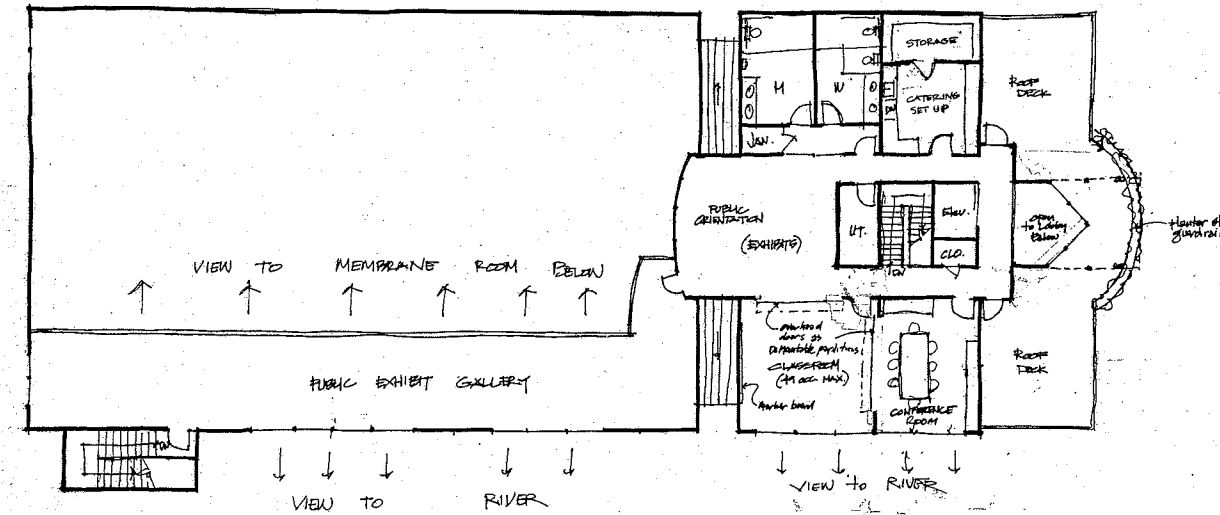 STORAGE
ROOF
DECK
M
W
CATERING
SET UP
DW
JAN.
PUBLIC
ORIENTATION
(EXHIBITS)
UT.
ELEV.
CLO.
DN
OPEN
to Lobby
Below
Planter
guardrail
VIEW TO MEMBRANE ROOM BELOW
overhead
doors as
Demountable partitions
CLASSROOM
(49 occ. MAX.)
Marker board
CONFERENCE
ROOM
ROOF
DECK
PUBLIC EXHIBIT GALLERY
DN
VIEW TO RIVER
VIEW to RIVER